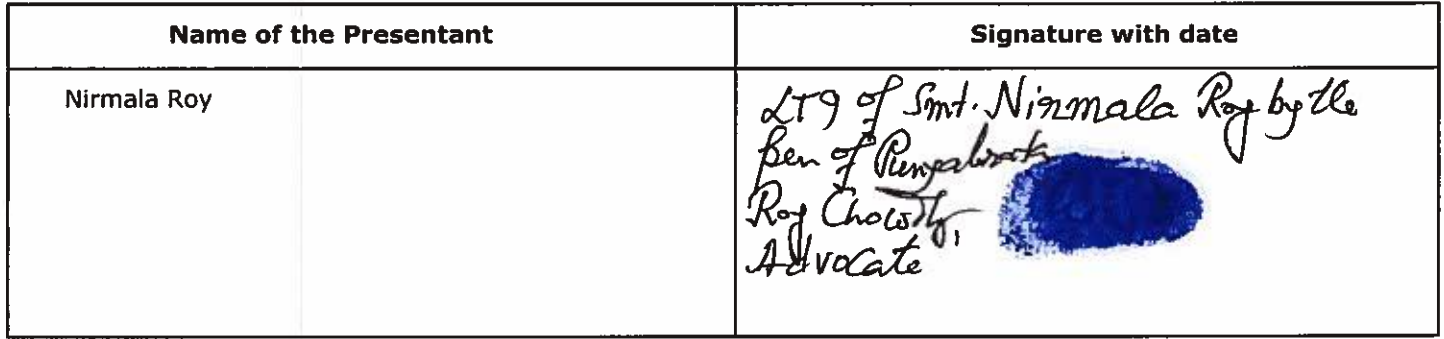 Name of the Presentant
Signature with date
Nirmala Roy
LTI of Smt. Nirmala Roy by the
Pen of Punyabrata
Roy Chowdhy,
Advocate